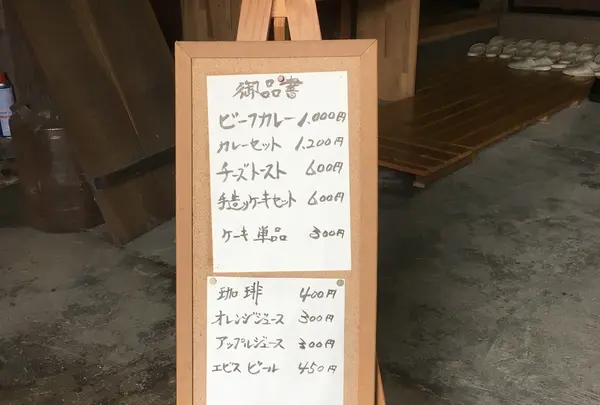 御品書
ビーフカレー 1,000円
カレーセット 1,200円
チーズトースト 600円
手造りケーキセット 600円
ケーキ単品 300円
珈琲 400円
オレンジジュース 300円
アップルジュース 300円
エビスビール 450円